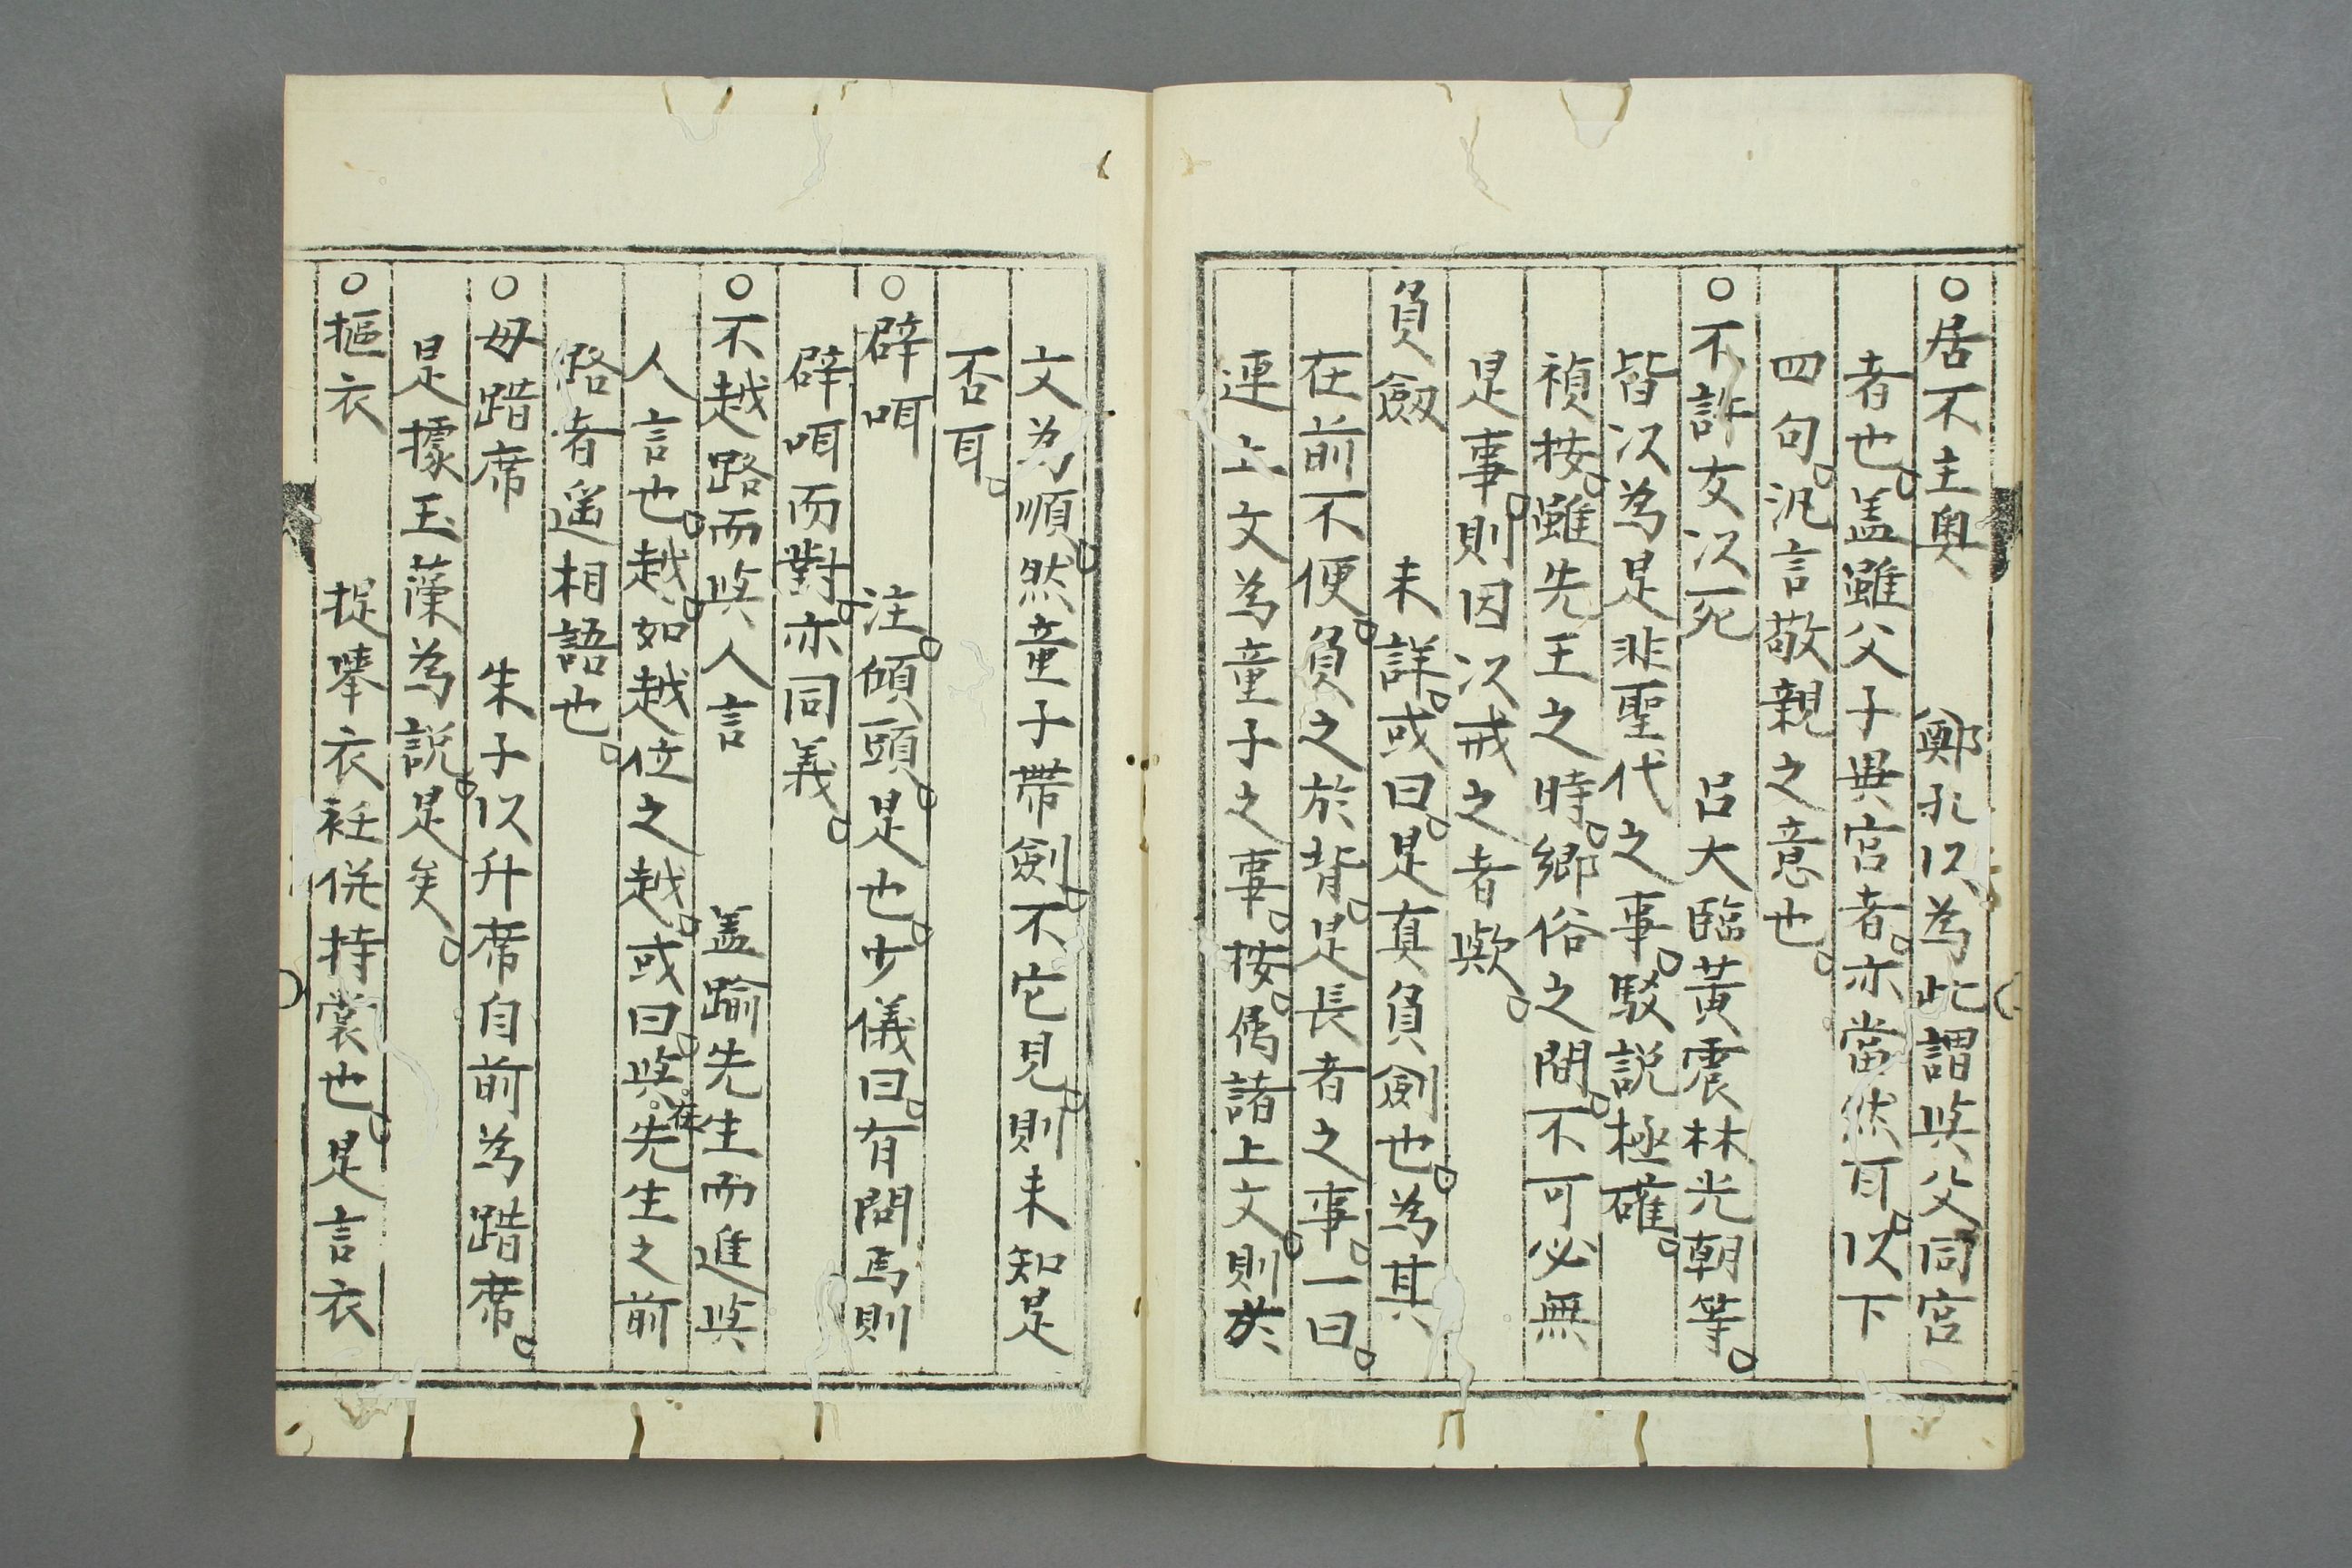 ○居不主奥　鄭孔以為此謂與父同宮
者也。盖雖父子異宮者。亦當然耳。以下
四句。汎言敬親之意也。
○不許友以死　呂大臨黃震林光朝等。
皆以為是非聖代之事。駁説極確。
禎按。雖先王之時。鄉俗之間。不可必無
是事。則因以戒之者歟。
負劔　未詳。或曰。是真負劍也。為其
在前不便。負之於背。是長者之事。一曰。
連上文為童子之事。按。屬諸上文。則於
文為順。然童子帶劍。不它見。則未知是
否耳。
○辟咡　注。傾頭。是也。少儀曰。有問焉則
辟咡而對。亦同義。
○不越路而與人言　盖踰先生而進與
人言也。越。如越位之越。或曰。與在先生之前
路者遥相語也。
○毋踖席　朱子以升席自前為踖席。
是據玉藻為説。是矣。
○摳衣　扱舉衣衽併持裳也。是言衣